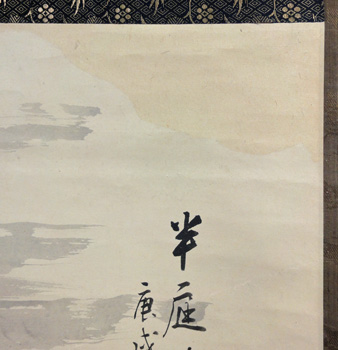 半庭
庚戌